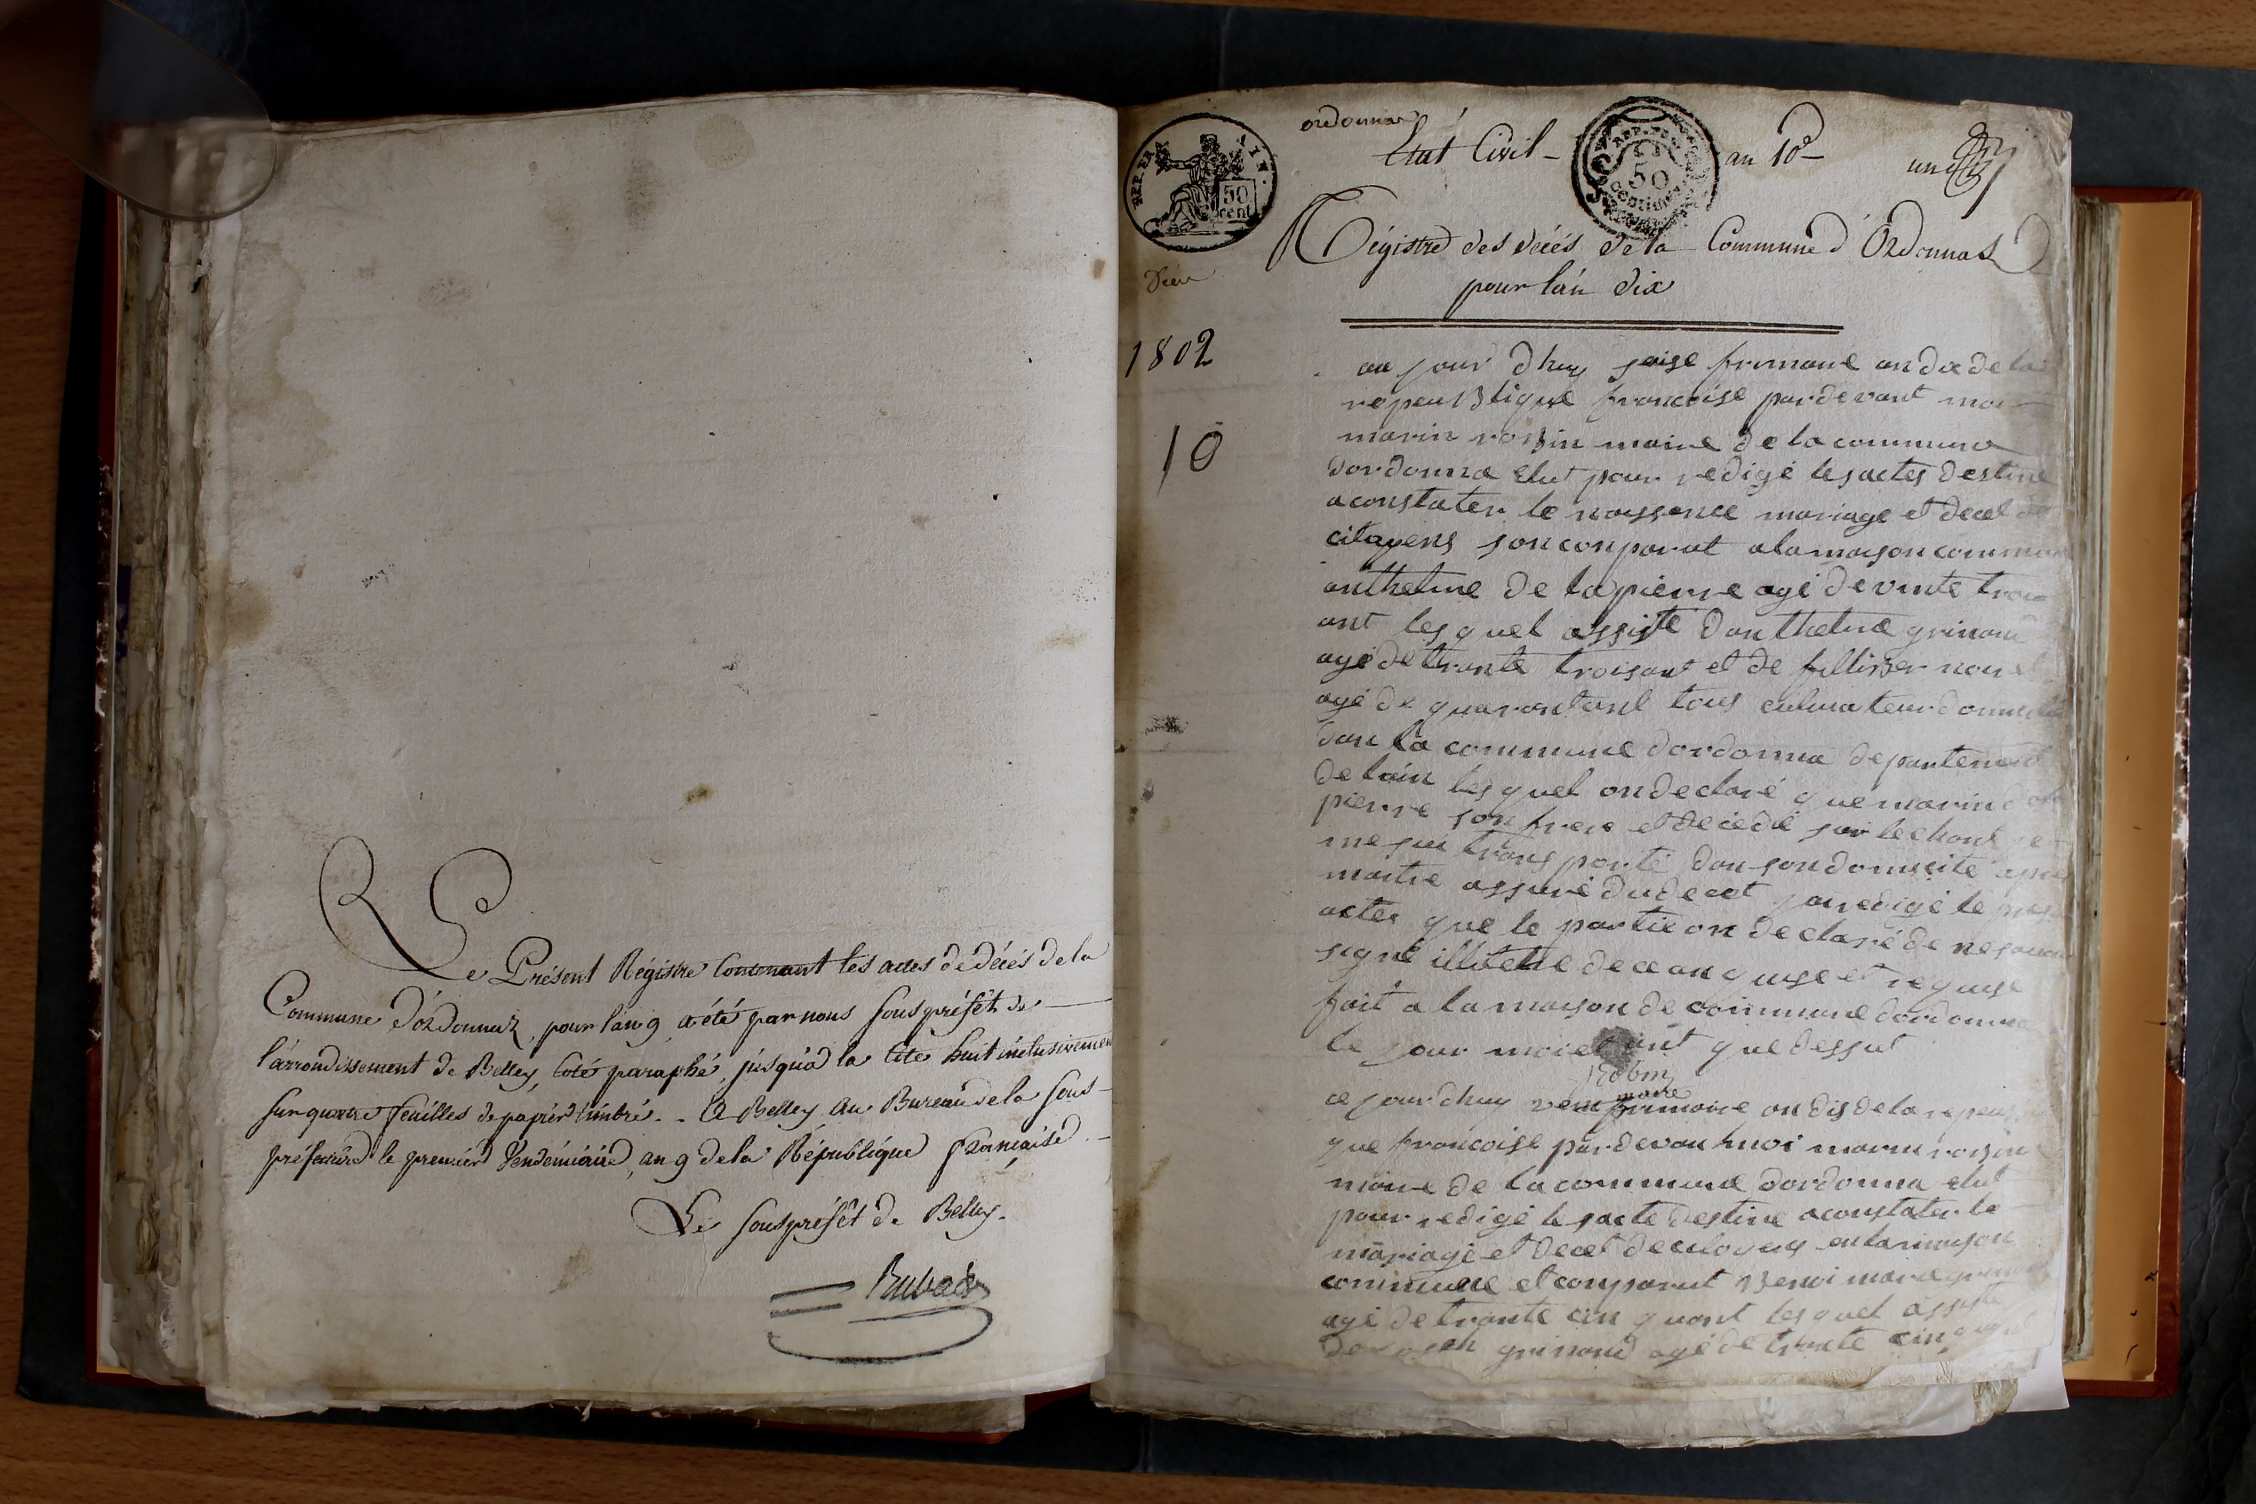 Le Présent Régistre Contenant les actes de décés de la
Commune d'ordonnaz, pour l'an 9, a été par nous souspréfêt de
l'arrondissement de Belley, coté paraphé, jusqu'à la cote huit inclusivement
sur quatre feuilles de papier timbré. - A Belley au Bureau de la sous-
préfecture le premier Vendémiaire, an 9 de la République française.
Le souspréfêt de Belley.
REP. FRA.
50
cent
ordonnas
État Civil - an 10e - un
50
Régistre des décés de la Commune d'Ordonnas
pour l'an dix
1802
10
au jour dhuy seise frimaire an dix de la
repeublique francoise pardevant moi
marin robin maire de la commune
dordonna elut pour redigé les actes destine
a constater le nayssence mariage et decet de
citoyens son conparut a la mayson commune
anthelme de la pierre agé de vinte trois
ant les quel assisté danthelme grinand
agé de trante troisant et de fillibber
agé de quarantant tous culuateur
dan la commune dordonna departement
de lain les quel on declaré que marin de la
pierre son frere et decedé sur le chant je
me sui transporté dan son domicile apre
maitre assuré du decet jan redigé le
actes que le partie on declaré de ne savoir
signé illaetté de ce anquise et requise
fait a la mayson de commune dordonna
le jour moi et ant que dessut
robin
maire
ce jour dhuy frimaire an dis de la repeubli
que francoise pardevan moi marin robin
maire de la commune dordonna elut
pour redigé le sacte destine a constater le
mariage et decet de citoyens en la mayson
commune et conparut benoi marie
agé de trante cin quant les quel assisté
de grinand agé de trante cin